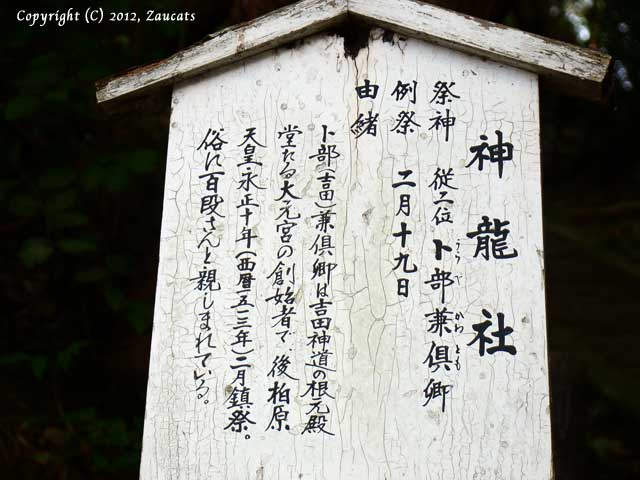 Copyright (C) 2012, Zaucats
神龍社
祭神 従二位 卜部兼倶卿
うらべ かねとも
例祭 二月十九日
由緒
卜部(吉田)兼倶卿は吉田神道の根元殿
堂たる大元宮の創始者で、後柏原
天皇、永正十年(西暦一五一三年)二月鎮祭。
俗に百段さんと親しまれている。